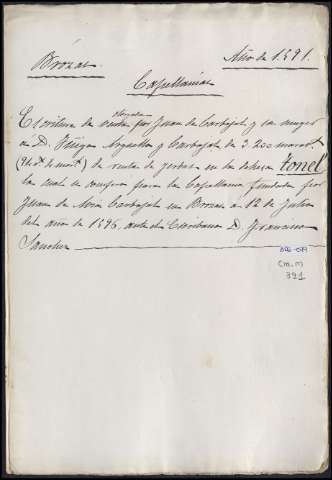 Brozas
Año de 1591.
Capellanías
otorgada
Escritura de venta por Juan de Carbajal y su muger
a D. Argüello y Carbajal de 3.200 marav.s
de renta de yerbas en la dehesa Tonel
la cual se compra para la Capellanía fundada por
Juan de Carbajal en Brozas a 12 de Julio
del año de 1596 ante el Escribano D. Francisco
Sanchez
(M.M)
391